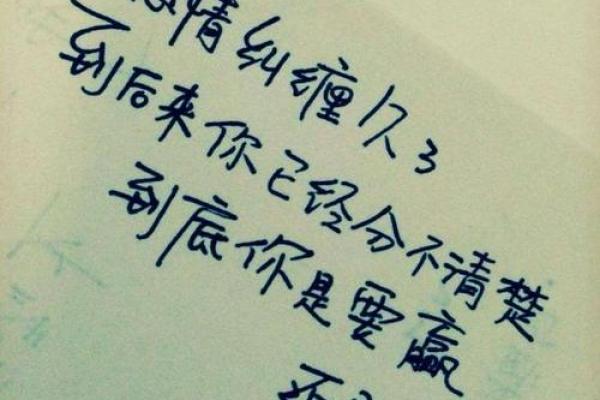 情纠缠久了
到后来你已经分不清楚
到底你是要赢